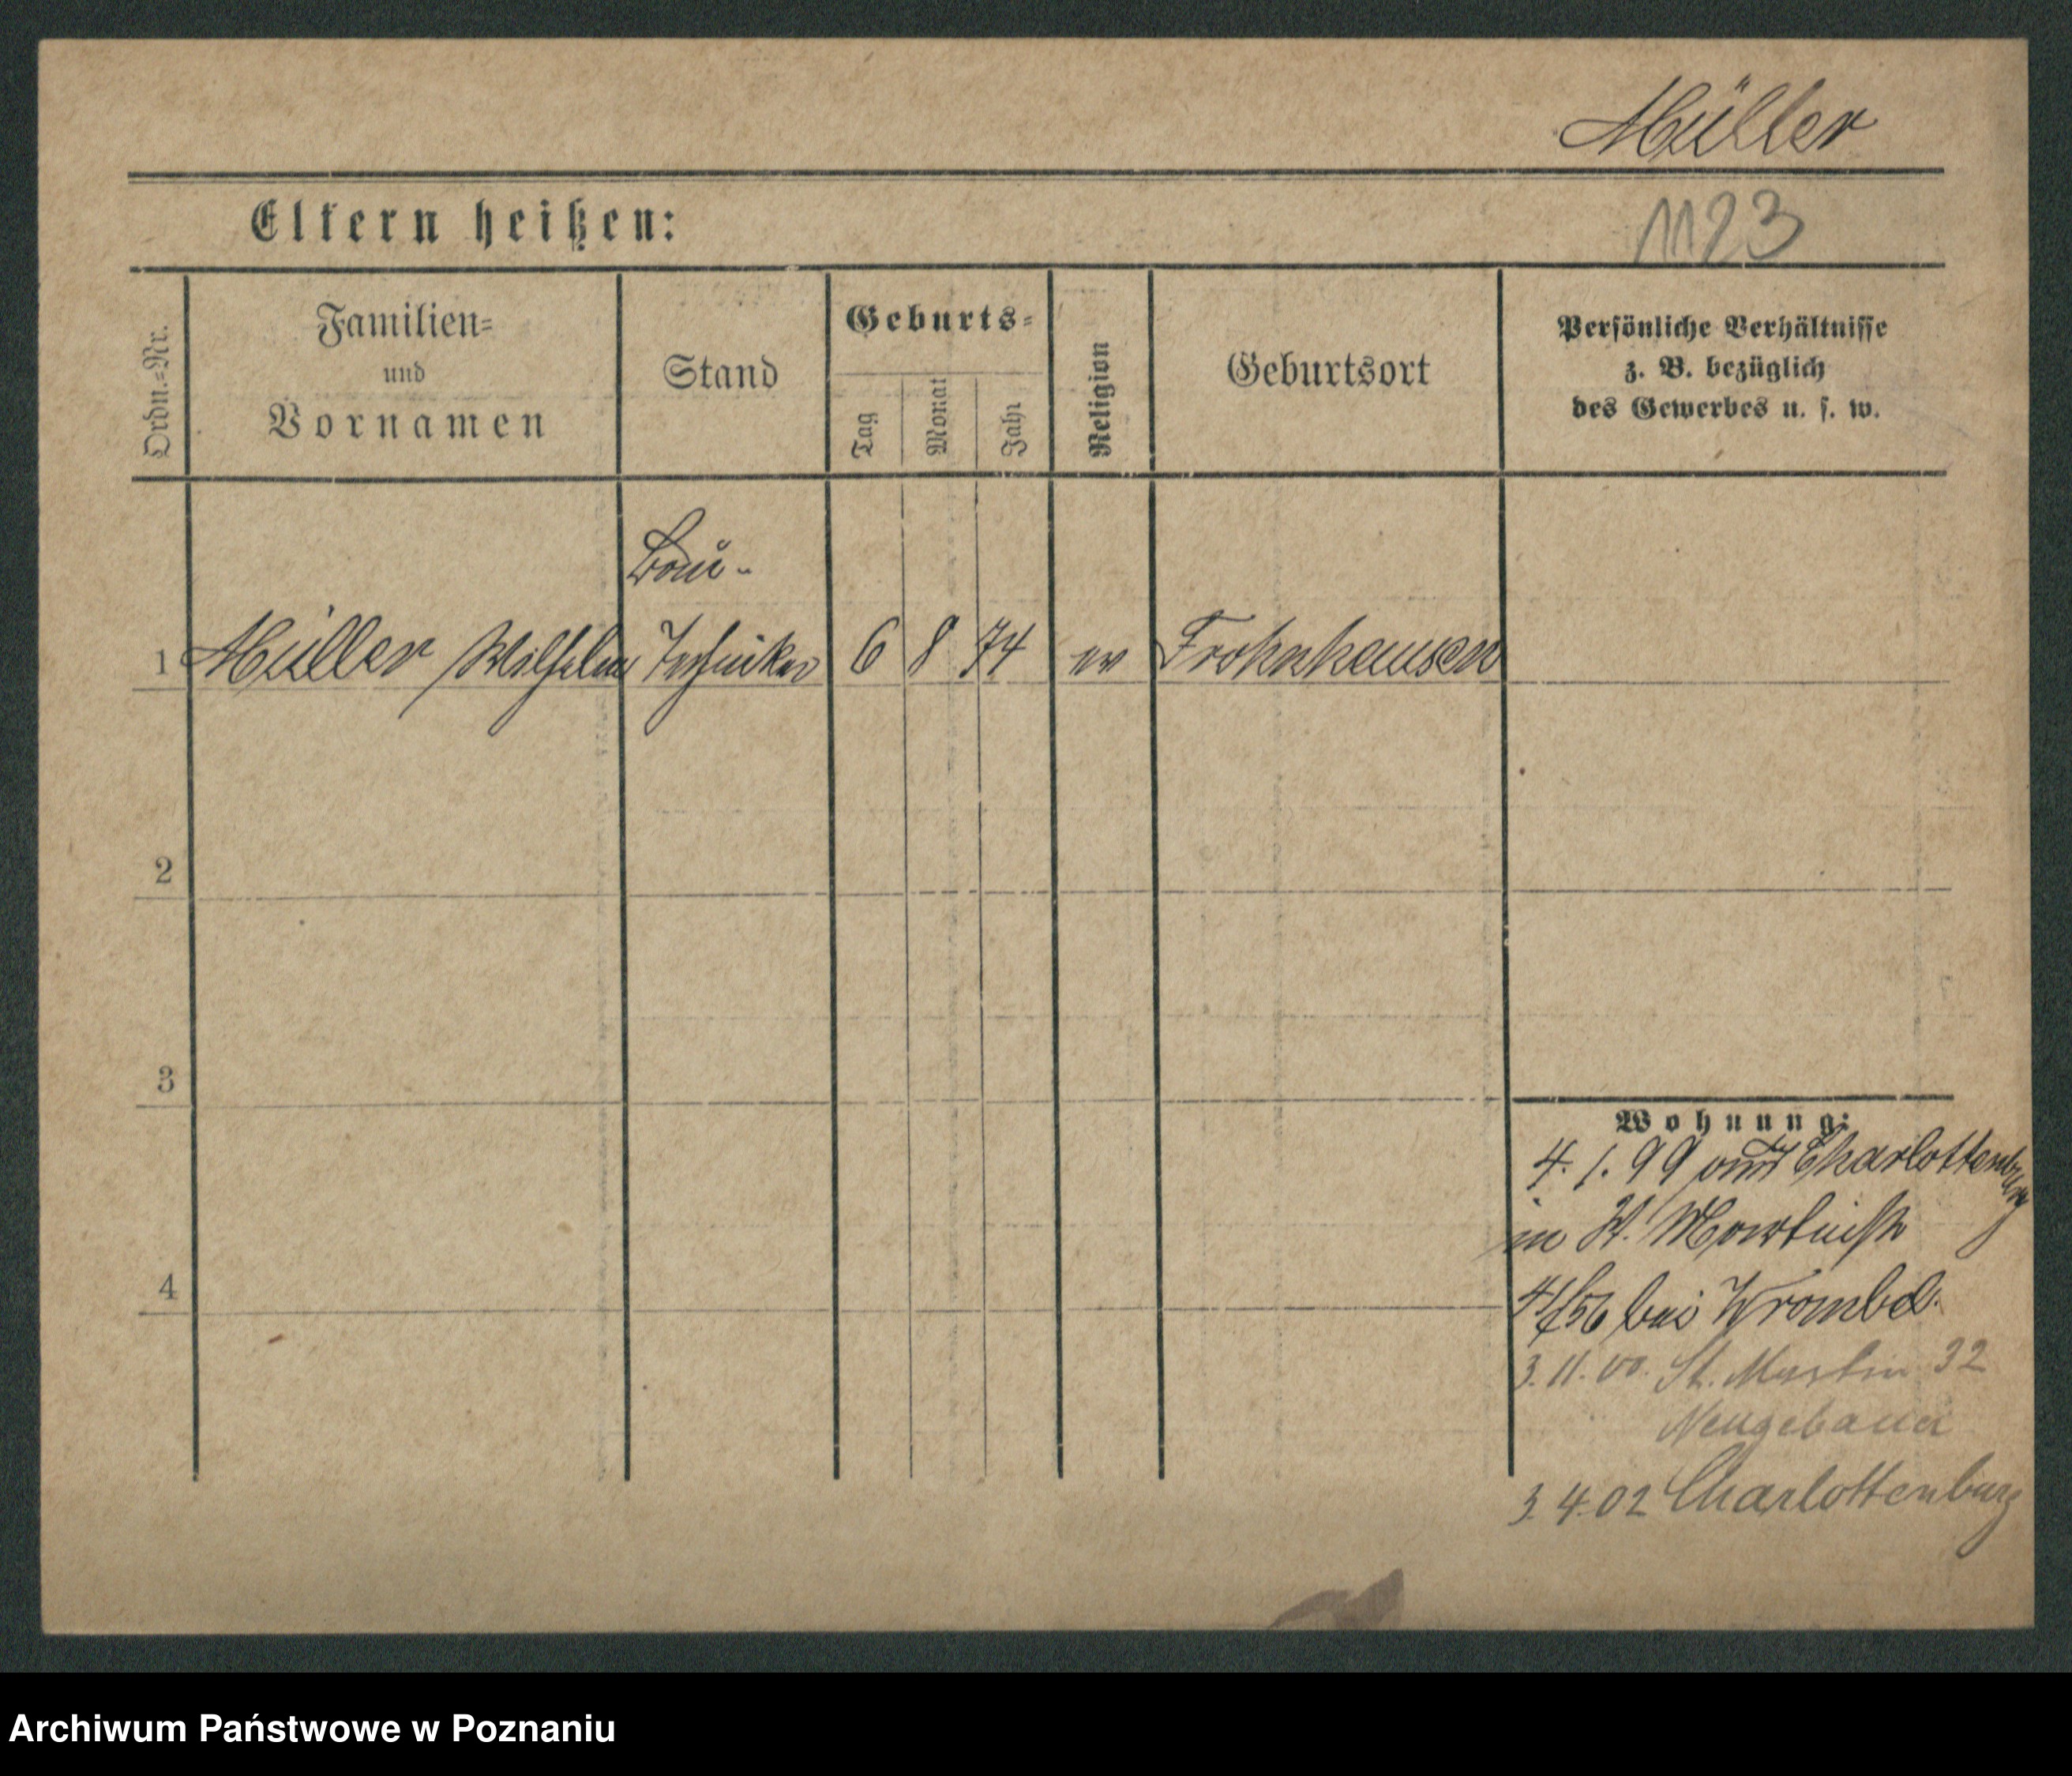 Müller
1123
Eltern heißen:
Ordn.=Nr.
Familien=
und
Vornamen
Stand
Geburts=
Tag
Monat
Jahr
Religion
Geburtsort
Persönliche Verhältnisse
z. B. bezüglich
des Gewerbes u. s. w.
Bau-
1 Müller Wilhelm Techniker 6 8 74 ev Frohnhausen
2
3
Wohnung:
4. 1. 99 aus Charlottenburg
in St. Martinstr
4
bei
3. 11. 00. St. Martin 32
Neugebauer
3. 4. 02 Charlottenburg
Archiwum Państwowe w Poznaniu